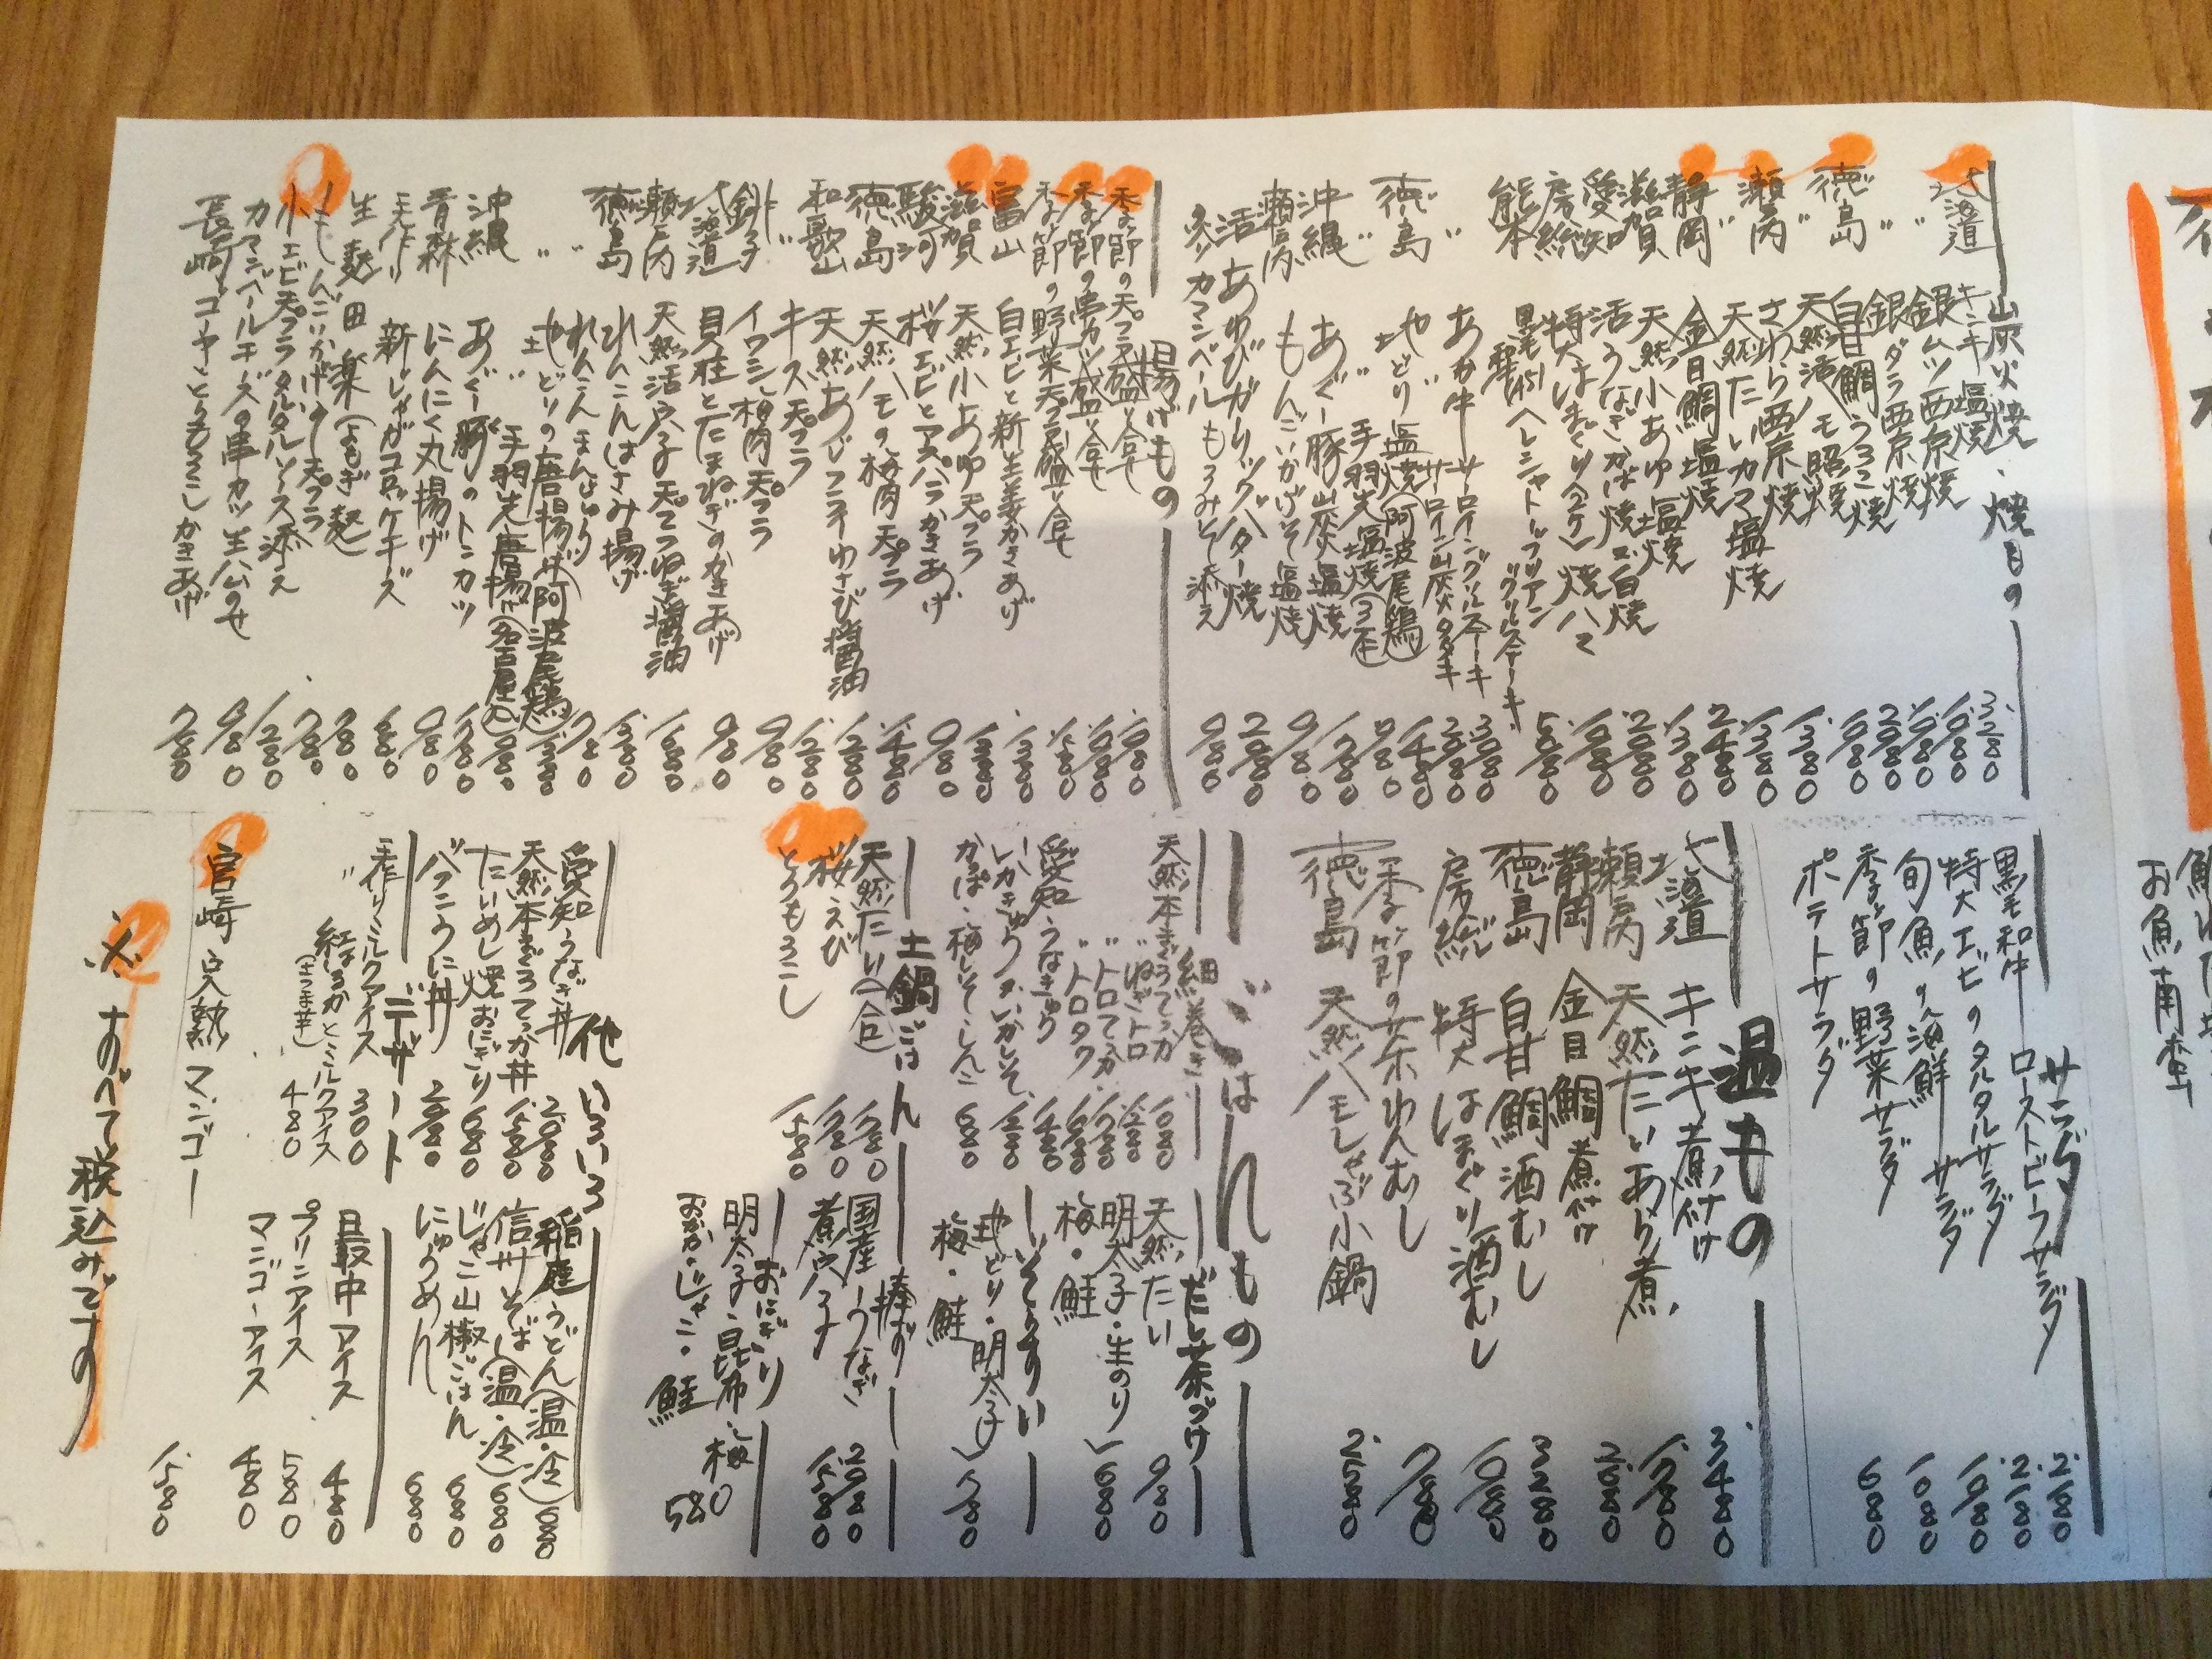 炭火焼、焼もの
北海道 キンキ塩焼 3.280
〃 銀ムツ西京焼 1.080
〃 銀ダラ西京焼 1.080
徳島 白甘鯛うろこ焼 2.080
〃 天然活ハモ照焼 1.080
瀬戸内 さわら西京焼 1.380
〃 天然たいカマ塩焼 1.380
静岡 金目鯛塩焼 2.480
滋賀 天然小あゆ塩焼 1.380
愛知 活うなぎかば焼or白焼 2.080
房総 特大はまぐり(2ケ)焼ハマ 1.080
熊本 黒毛和牛(A5)ヘレシャトーブリアン
グリルステーキ
〃 あか牛 サーロイングリルステーキ 3.080
サーロイン炭火タタキ 2.080
徳島 地どり塩焼(阿波尾鶏) 1.480
〃 手羽先塩焼(3本)
沖縄 あぐー豚炭火塩焼 1.780
瀬戸内 もんごいかげそ塩焼 980
活あわびガーリックバター焼 2.080
炙りカマンベールもろみそ添え 980
揚げもの
季節の天プラ盛り合せ 1.080
季節の串カツ盛り合せ 1.080
季節の野菜天プラ盛り合せ
富山 白エビと新生姜かきあげ 1.380
滋賀 天然小あゆ天プラ 1.380
駿河 桜エビとアスパラかきあげ 980
徳島 天然ハモの梅肉天プラ 1.480
和歌山 天然あじフライわさび醤油 1.280
〃 キス天プラ 1.280
銚子 イワシし梅肉天プラ 980
北海道 貝柱とたまねぎのかきあげ 980
瀬戸内 天然活穴子天プラねぎ醤油 1.680
徳島 れんこんはさみ揚げ 1.380
〃 れんこんまんじゅう 780
〃 地どりの唐揚げ(阿波尾鶏) 1.380
〃 手羽先唐揚げ(名古屋心)
沖縄 あぐー豚のトンカツ 1.780
青森 にんにく丸揚げ 980
手作り 新じゃがコロッケチーズ
生麩田楽(よもぎ麩) 780
もんごいかげその天プラ 780
小エビ天プラタルタルソース添え 1.280
カマンベールチーズの串カツ生ハムのせ 980
長崎 ゴーヤととうもろこしかきあげ 780
サラダ
黒毛和牛ローストビーフサラダ 2.180
特大エビのタルタルサラダ 2.180
旬魚の海鮮サラダ 1.080
季節の野菜サラダ 1.080
ポテトサラダ 680
温もの
北海道 キンキ煮付け 3.480
瀬戸内 天然たいあら煮 1.780
静岡 金目鯛煮付け 2.680
徳島 白甘鯛酒むし 3.280
房総 特大はまぐり酒むし 1.080
季節の茶わんむし 780
徳島 天然ハモしゃぶ小鍋 2.580
ごはんもの
細巻き
天然本まぐろてっか 1.080
〃 ねぎトロ 1.280
〃 トロてっか 1.780
〃 トロタク 1.680
愛知うなきゅう 1.480
いかきゅう・いかしそ 1.280
かっぱ・梅しそ・しんこ 680
だし茶づけ
天然たい 980
明太子・生のり
梅・鮭 680
ぞうすい
地どり・明太子
梅・鮭 780
土鍋ごはん
天然たい(一合) 1.780
桜えび 1.780
とうもろこし 1.580
棒ずし
国産うなぎ 2.080
煮穴子 1.580
おにぎり
明太子・昆布・梅
おかか・じゃこ・鮭 580
他いろいろ
愛知うなぎ丼 2.080
天然本まぐろてっか丼 1.580
たいめし焼おにぎり 680
バフンうに丼 2.980
稲庭うどん(温・冷) 680
信州そば(温・冷) 680
じゃこ山椒ごはん 680
にゅうめん 680
デザート
手作りミルクアイス 300
〃 紅はるかとミルクアイス
(さつま芋) 480
最中アイス 480
プリンアイス 580
マンゴーアイス 480
宮崎 完熟マンゴー 1.580
※すべて税込みです
お魚南蛮